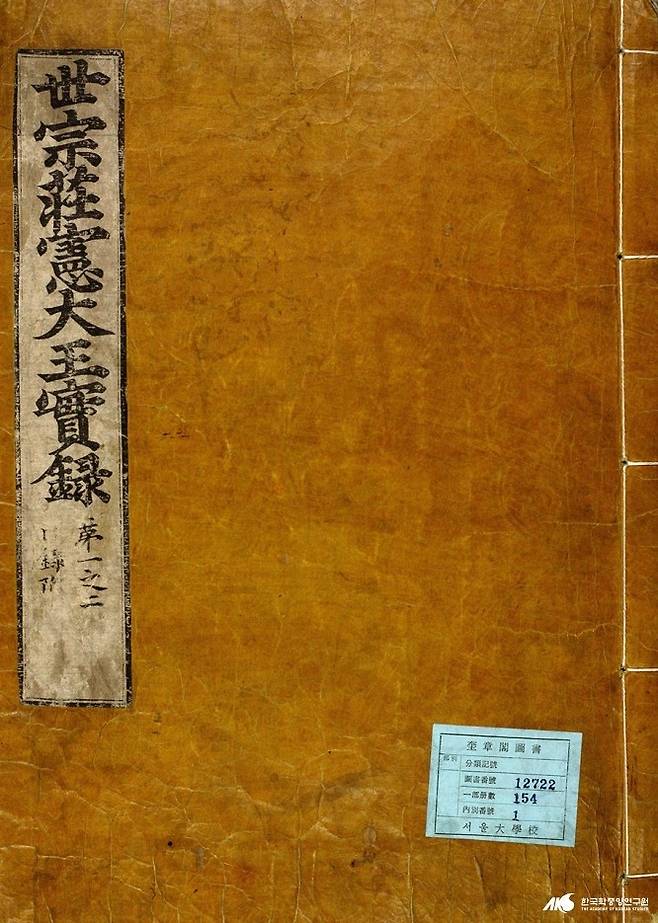 世宗莊憲大王實錄
第一之二
目錄附
奎章閣圖書
部別
分類記號
圖書番號 12722
一部册數 154
內別番號 1
서울大學校
AKS 한국학중앙연구원
THE ACADEMY OF KOREAN STUDIES